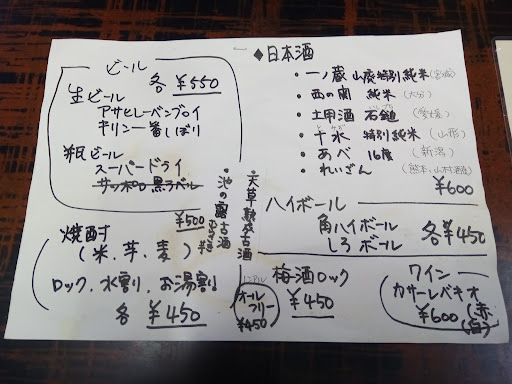 ビール
各 ¥550
生ビール
アサヒレーベンブロイ
キリン一番しぼり
瓶ビール
スーパードライ
サッポロ黒ラベル
焼酎
(米、芋、麦)
ロック、水割、お湯割
各 ¥450
¥500
・天草熟成古酒
・池の露古酒
オール
フリー
¥450
◆日本酒
・一ノ蔵 山廃特別純米(宮城)
・西の関 純米(大分)
・土甲酒 石鎚(愛媛)
・十水 特別純米(山形)
・あべ (新潟)
・れいざん(熊本、山村酒造)
¥600
ハイボール
角ハイボール
しろボール
各¥450
梅酒ロック
¥450
ワイン
カサーレベキオ
¥600(赤
白)